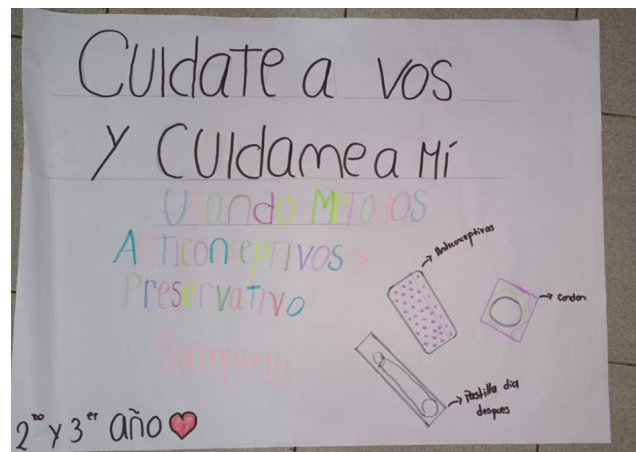 CUIdATE a vos
y CUIdame a Mí
Usando METODOS
ANTICONCEPTIVOS y
Preservativo
Siempre!!!
→ Anticonceptivos
→ Condon
→ Pastilla dia
despues
2do y 3er año ❤